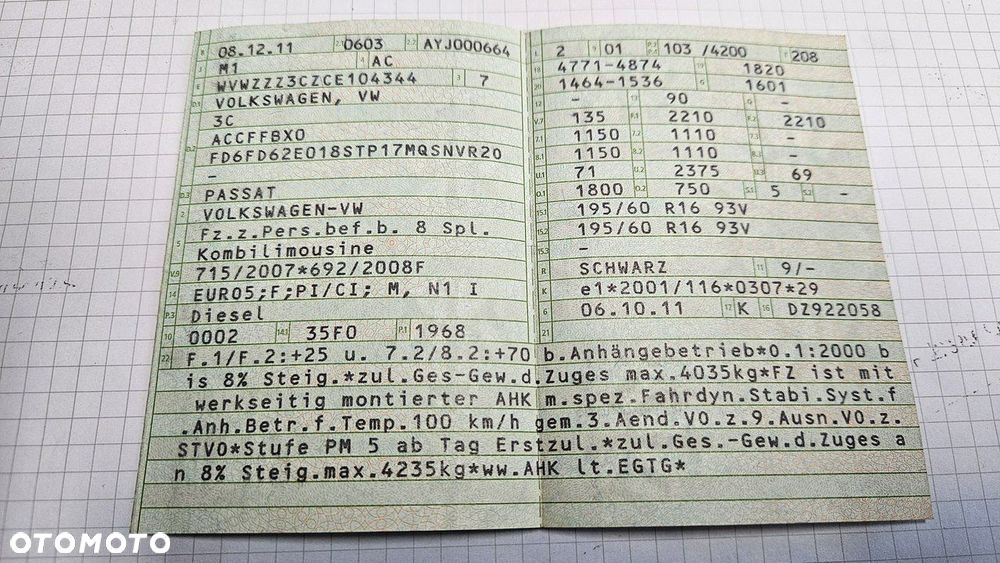 B 08.12.11 2.1 0603 2.2 AYJ000664
J M1 4 AC
E WVWZZZ3CZCE104344 3 7
D.1 VOLKSWAGEN, VW
3C
D.2 ACCFFBX0
FD6FD62E018STP17MQSNVR20
-
D.3 PASSAT
2 VOLKSWAGEN-VW
5 Fz.z.Pers.bef.b. 8 Spl.
Kombilimousine
V.9 715/2007*692/2008F
14 EURO5;F;PI/CI; M, N1 I
P.3 Diesel
10 0002 14.1 35F0 P.1 1968
L 2 9 01 P.2 P.4 103 /4200 T 208
18 4771-4874 19 1820
20 1464-1536 G 1601
12 - 13 90 Q -
V.7 135 F.1 2210 F.2 2210
7.1 1150 7.2 1110 7.3 -
8.1 1150 8.2 1110 8.3 -
U.1 71 U.2 2375 U.3 69
O.1 1800 O.2 750 S.1 5 S.2 -
15.1 195/60 R16 93V
15.2 195/60 R16 93V
15.3 -
R SCHWARZ 11 9/-
K e1*2001/116*0307*29
6 06.10.11 17 K 16 DZ922058
21
22 F.1/F.2:+25 u. 7.2/8.2:+70 b.Anhängebetrieb*0.1:2000 b
is 8% Steig.*zul.Ges-Gew.d.Zuges max.4035kg*FZ ist mit
werkseitig montierter AHK m.spez.Fahrdyn.Stabi.Syst.f
.Anh.Betr.f.Temp.100 km/h gem.3.Aend.VO.z.9.Ausn.VO.z.
STVO*Stufe PM 5 ab Tag Erstzul.*zul.Ges.-Gew.d.Zuges a
n 8% Steig.max.4235kg*ww.AHK lt.EGTG*
OTOMOTO